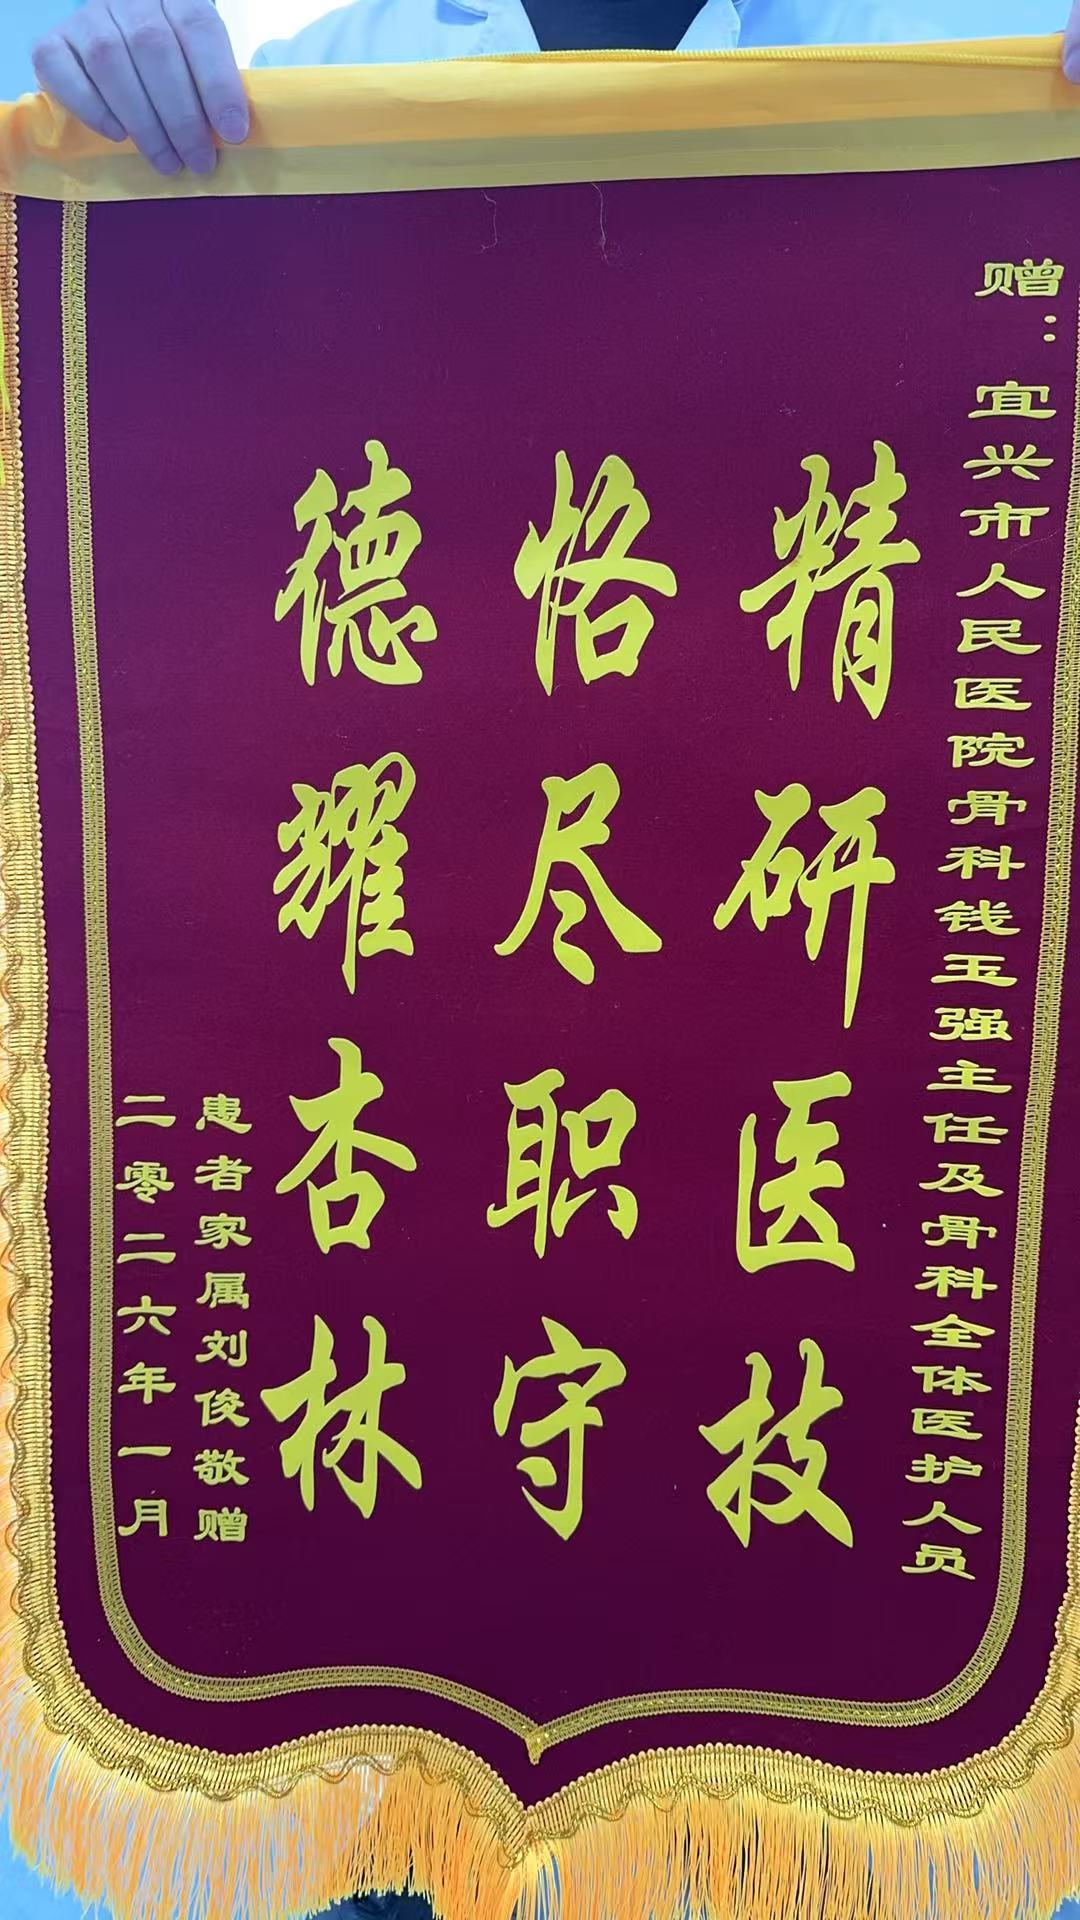 赠：宜兴市人民医院骨科钱玉强主任及骨科全体医护人员
精研医技
恪尽职守
德耀杏林
患者家属刘俊敬赠
二零二六年一月